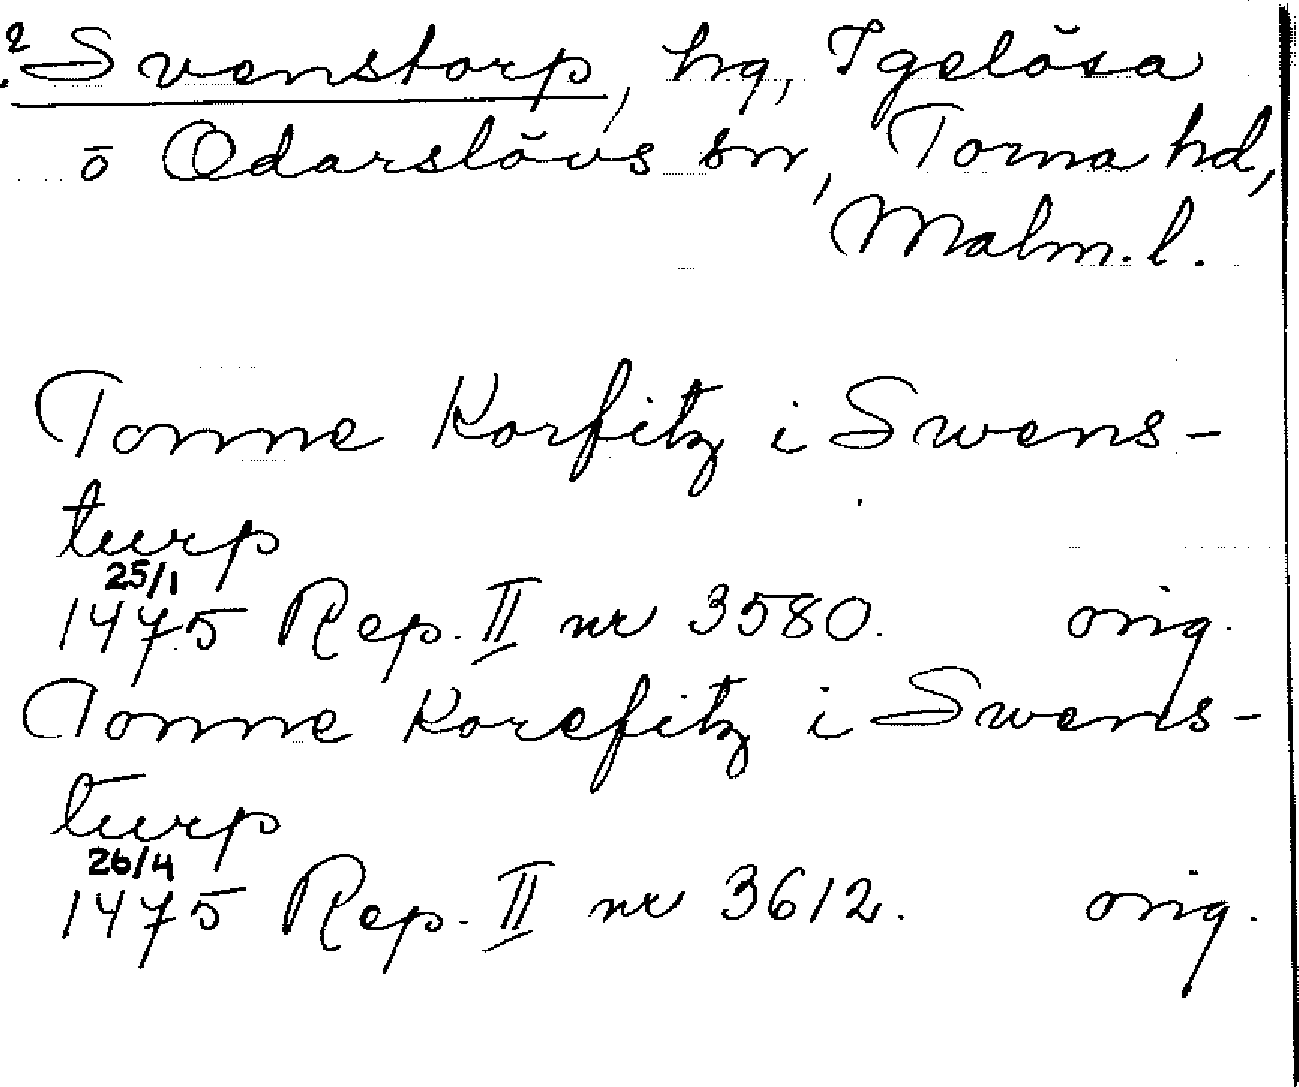 2 Svenstorp, hg, Igelösa
o Odarslövs snr, Torna hd,
Malm. l.
Tonne Korfitz i Swens-
turp
25/1
1475 Rep. II nr 3580. orig.
Tonne Korefitz i Swens-
turp
26/4
1475 Rep. II nr 3612. orig.